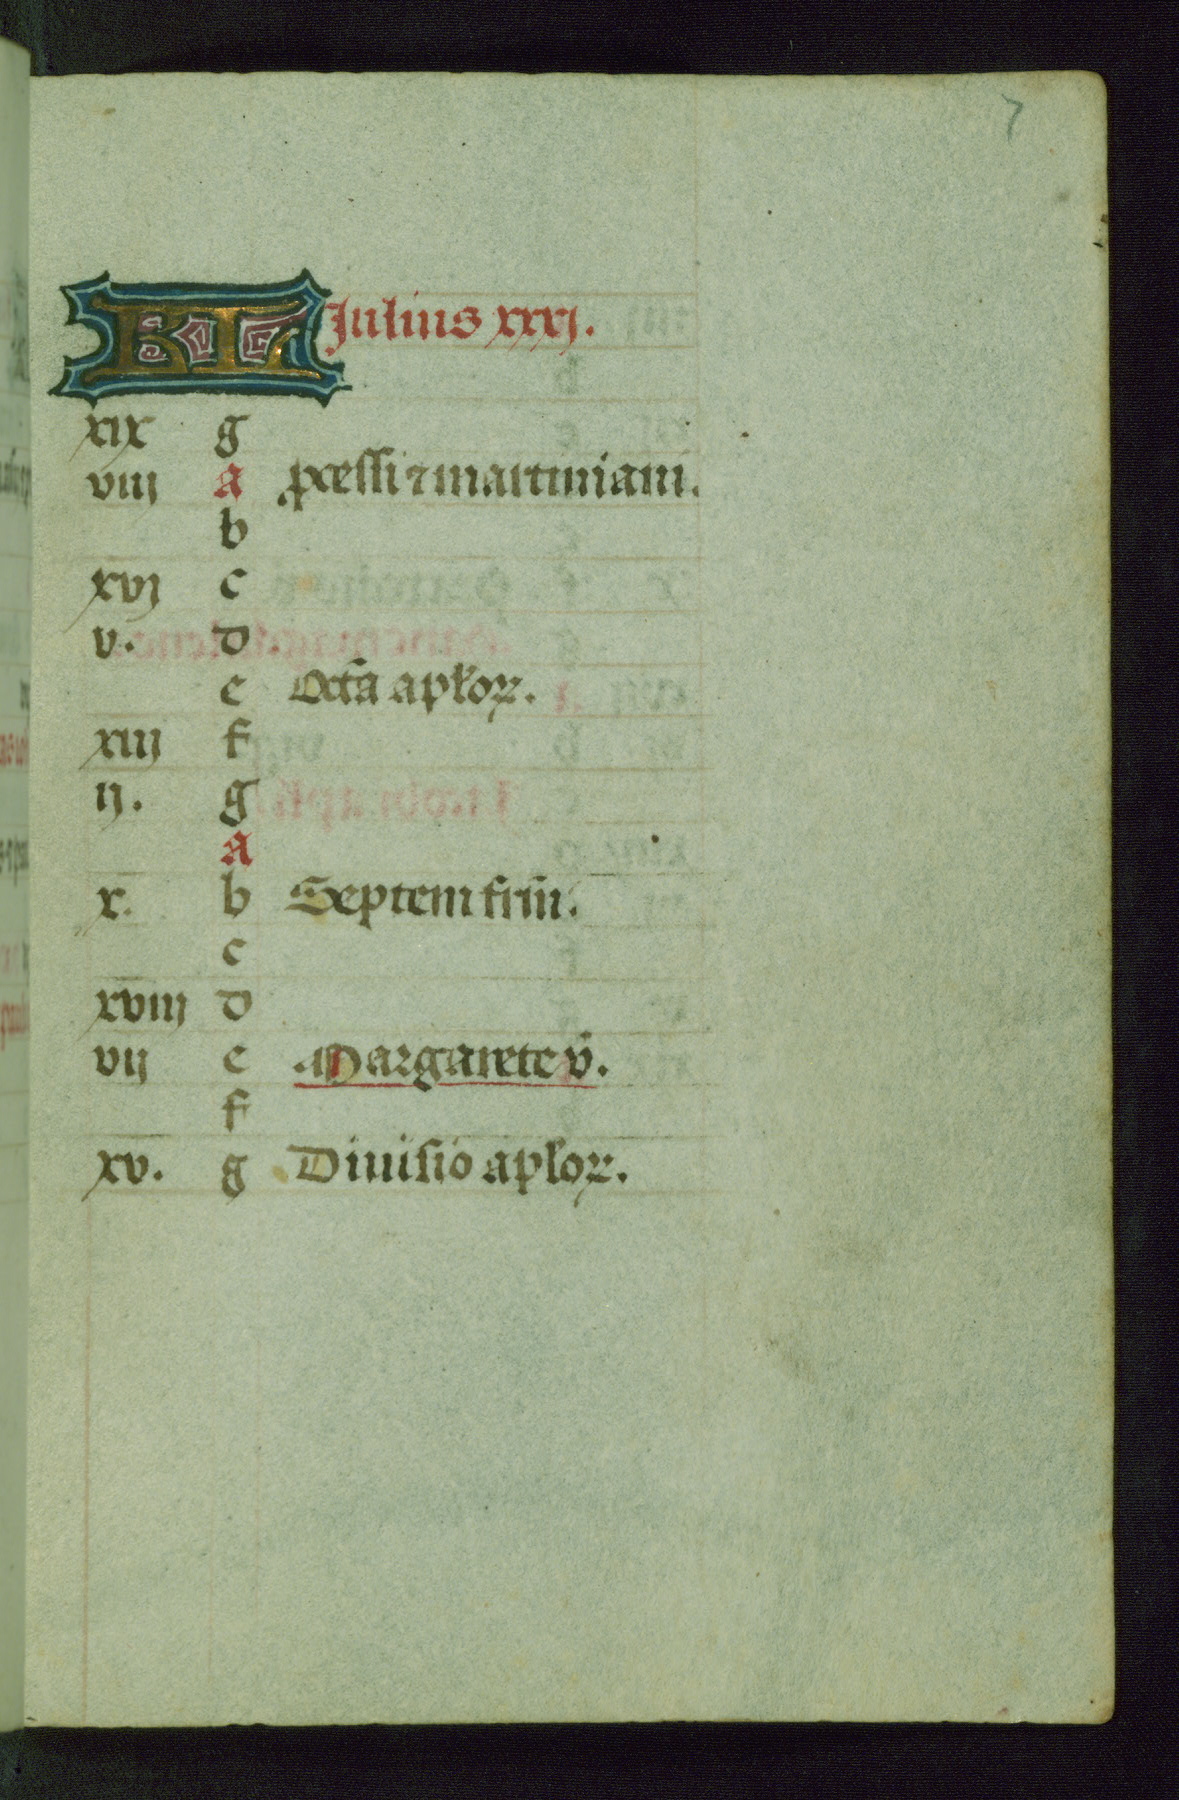 7
KL Julius xxxj.
xix g
viij a ꝓcessi ⁊ martiniani.
b
xvj c
v. d
e Octã apłoꝝ.
xiij f
ij. g
a
x. b Septem frm̃.
c
xviij d
vij e Margarete v̄.
f
xv. g Diuisio apłoꝝ.